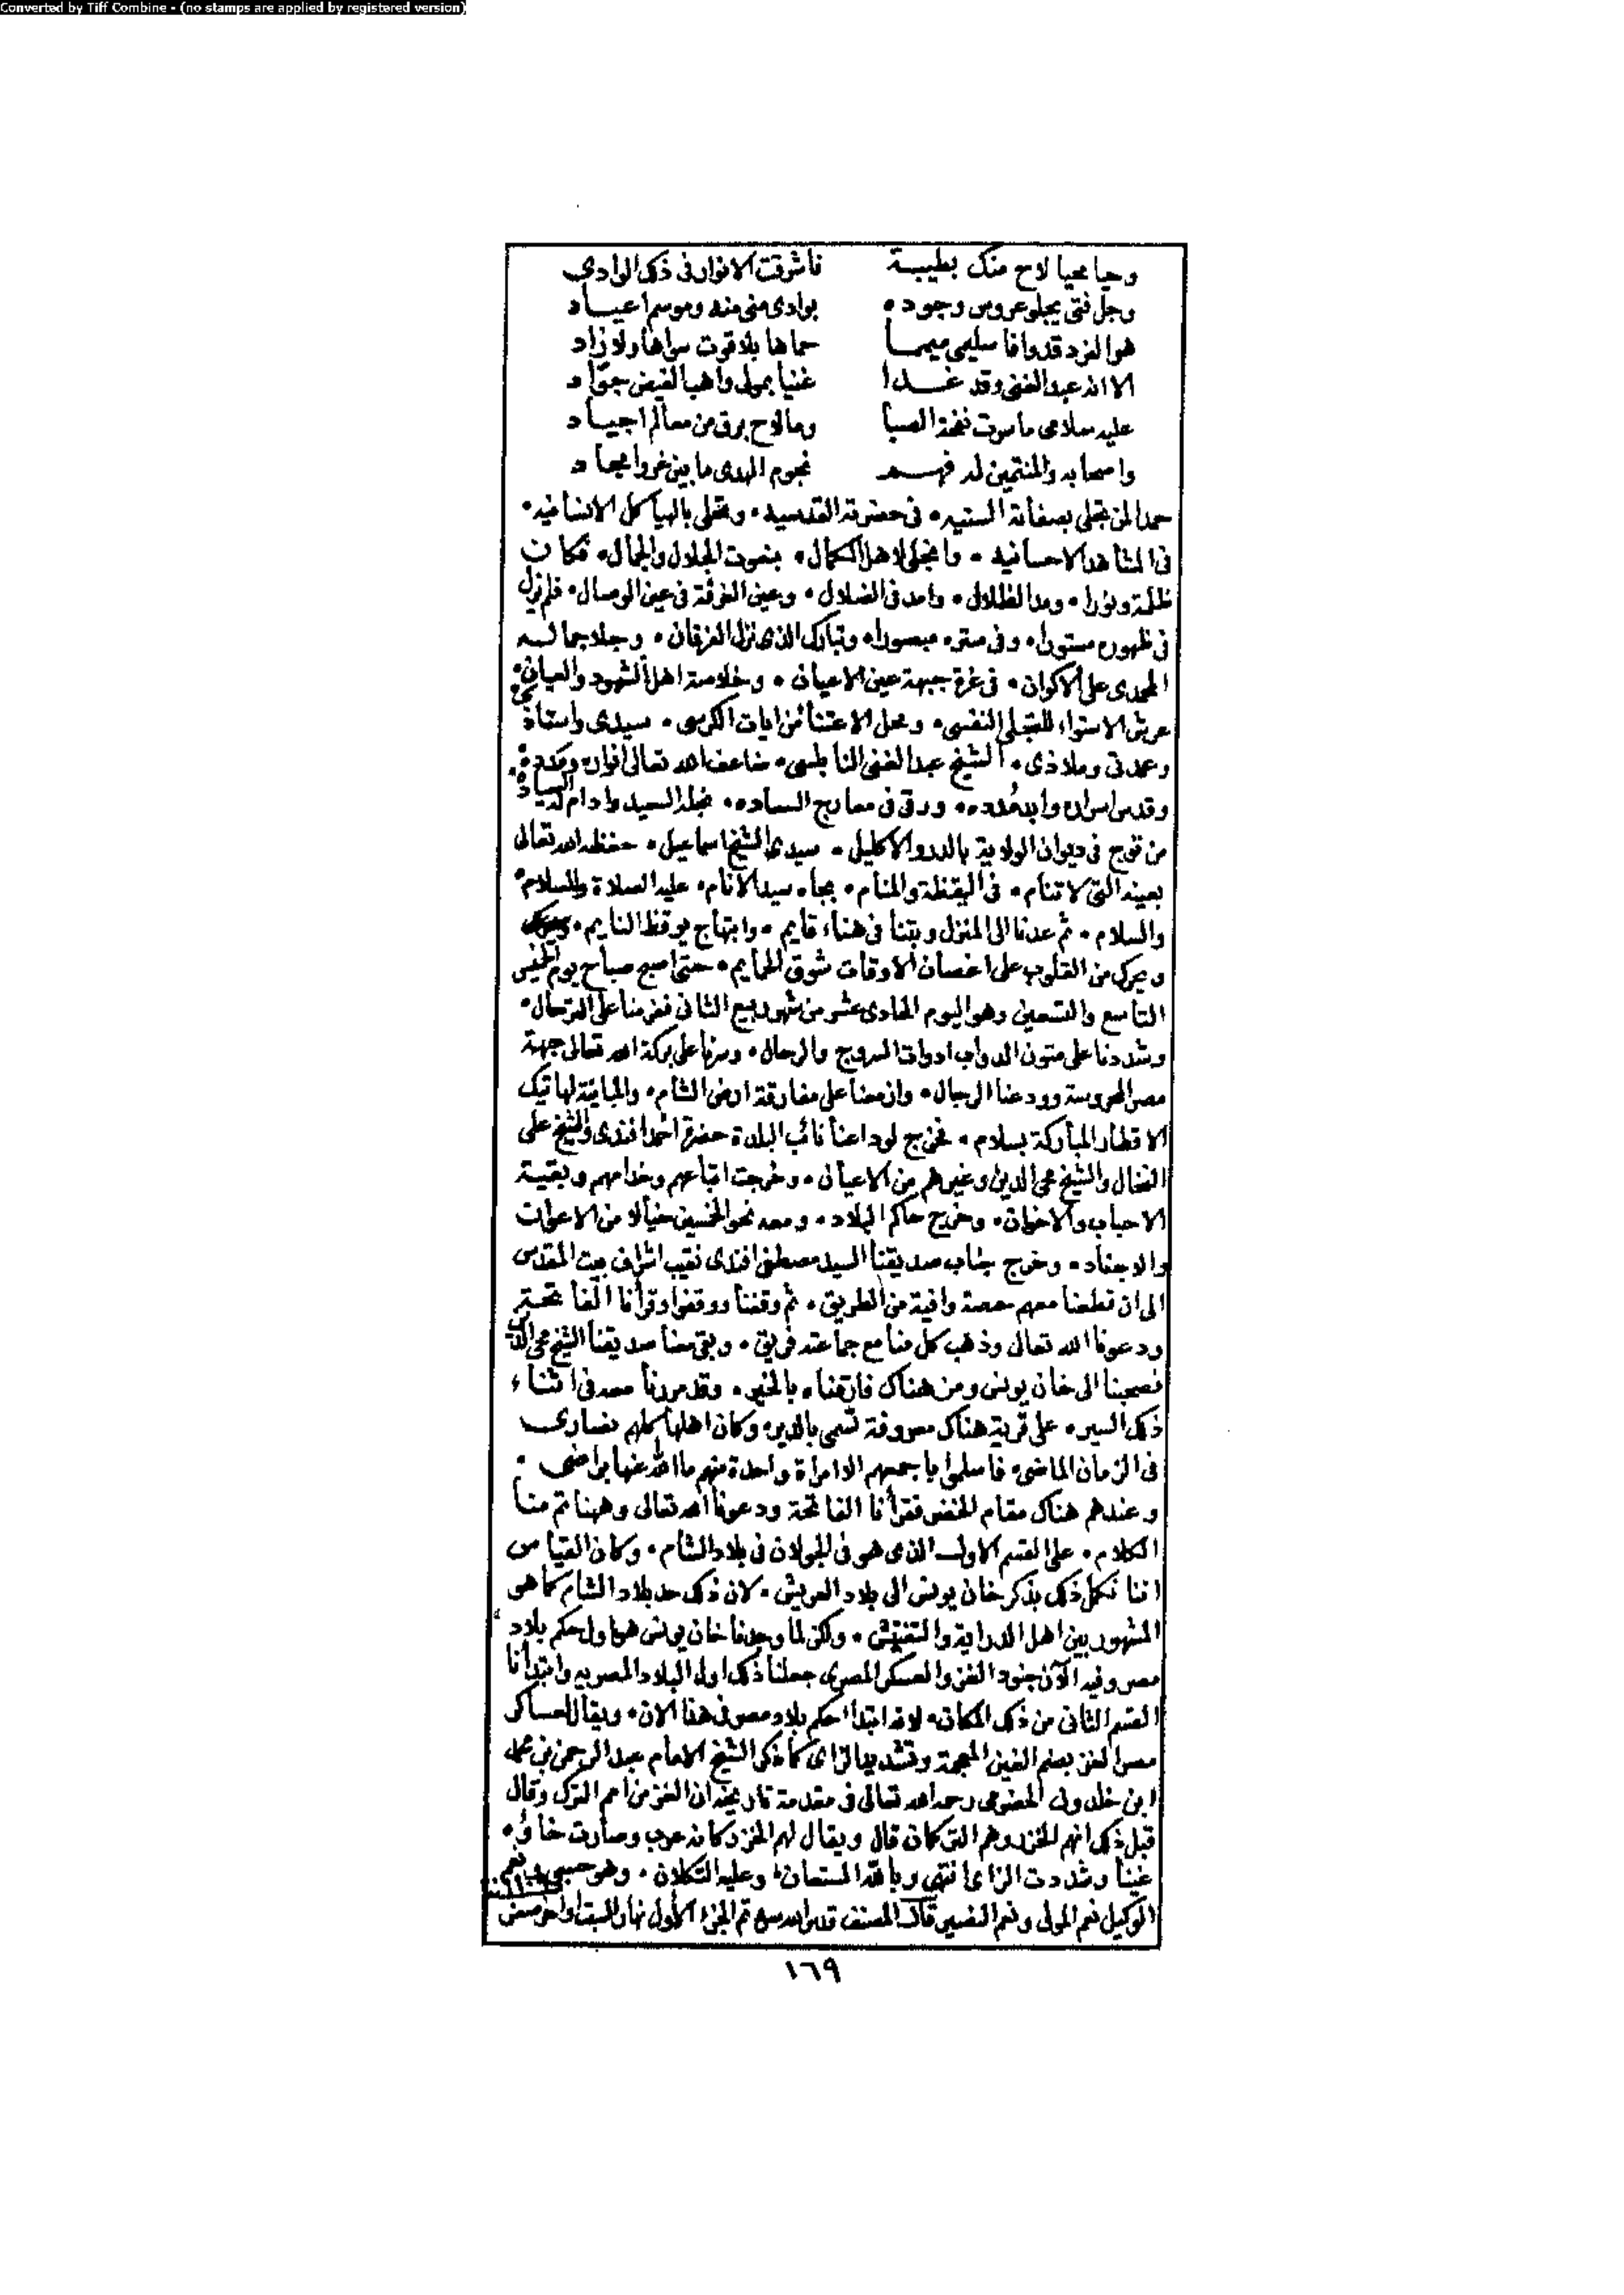 Converted by Tiff Combine - (no stamps are applied by registered version)
وحيا محيا لاح منك بطيبة فاشرقت الانوار فى ذلك الوادى
وجل فتى يجلو عروس وجوده بوادى منى منه وموسم اعياد
هو الفرد قد وافا سليمى ميمما حماها بلا قوت سواها ولا زاد
الا انه عبد الغنى وقد غدا غنيا بمولى واهب الفيض جواد
عليه سلامى ما سرت نفحة الصبا وما لاح برق من معالم اجياد
واصحابه والمنتمين له فهم نجوم الهدى ما بين غور وانجاد
حمدا لمن تجلى بصفاته السنيه، فى حضرته القدسيه، وتحلى بالهياكل الانسانيه،
فى المشاهد الاحسانيه، وانجلى لاهل الكمال، بنعوت الجلال والجمال، فكان
ظلمة ونورا، ومد الظلال، وامد فى الضلال، وعين الفرقة فى عين الوصال، فلم يزل
فى ظهوره مستورا، وفى ستره مبصورا، وتبارك الذى نزل الفرقان، وجلا جماله
المحمدى على الاكوان، فى غرة جبهة عين الاعيان، وخلاصة اهل الشهود والعيان،
عرش الاستواء للتجلى النفسى، ومحل الاعتناء من ايات الكرسى، سيدى واستاذى
وعمدتى وملاذى، الشيخ عبد الغنى النابلسى، ضاعف الله تعالى انواره ومدده،
وقدس اسراره وابد مدده، ورقى فى معارج السعاده، نجله السعيد وادام له السياده
من توج فى ديوان الولاية بالدر والاكليل، سيدى الشيخ اسماعيل، حفظه الله تعالى
بعينه التى لا تنام، فى اليقظة والمنام، بجاه سيد الانام، عليه الصلاة والسلام،
والسلام، ثم عدنا الى المنزل وبتنا فى هناء قايم، وابتهاج يوقظ النايم،
ويحرك من القلوب على اغصان الاوقات شوق الحمايم، حتى اصبح صباح يوم الخميس
التاسع والتسعين وهو اليوم الحادى عشر من شهر ربيع الثانى فعزمنا على الترحال،
وشددنا على متون الدواب ادوات السروج والرحال، وسرنا على بركة الله تعالى جهة
مصر المحروسة وودعنا الرجال، وازمعنا على مفارقة ارض الشام، والمباينة لهاتيك
الاقطار المباركة بسلام، فخرج لوداعنا نائب البلدة حضرة احمد افندى والشيخ على
النخال والشيخ محى الدين وغيرهم من الاعيان، وخرجت اتباعهم وخدامهم وبقية
الاحباب والاخوان، وخرج حاكم البلاد، ومعه نحو الخمسين خيالا من الاعوان
والاجناد، وخرج جناب صديقنا السيد مصطفى افندى نقيب اشراف بيت المقدس
الى ان قطعنا معهم حصة وافية من الطريق، ثم وقفنا ووقفوا وقرأنا الفاتحة
ودعونا الله تعالى وذهب كل منا مع جماعته فريق، وبقى معنا صديقنا الشيخ محى الدين
فصحبنا الى خان يونس ومن هناك فارقناه بالخير، وقد مررنا معه فى اثناء
ذلك السير، على قرية هناك معروفة تسمى بالدير، وكان اهلها كلهم نصارى
فى الزمان الماضى، فاسلموا باجمعهم الا امراة واحدة منهم ما الله عنها براضى،
وعندهم هناك مقام الخضر فقرأنا الفاتحة ودعونا الله تعالى وهنا تم منا
الكلام، على القسم الاول الذى هو فى الجولان فى بلاد الشام، وكان القياس
اننا نكمل ذلك بذكر خان يونس الى بلاد العريش، لان ذلك حد بلاد الشام كما هو
المشهور بين اهل الدراية والتفتيش، ولكن لما وجدنا خان يونس هو اول حكم بلاد
مصر وفيه الآن جنود الغز والعسكر المصرى جعلنا ذلك اول البلاد المصريه وابتدأنا
القسم الثانى من ذلك المكان، لانه ابتداء حكم بلاد مصر فى هذا الان، ويقال لعساكر
مصر الغز بضم الغين المعجمة وتشديد الزاى كما ذكر الشيخ الامام عبد الرحمن بن محمد
ابن خلدون الحضرمى رحمه الله تعالى فى مقدمة تاريخه ان الغز من امم الترك وقال
قبل ذلك انهم الخزر وهم التركمان قال ويقال لهم الخزر كانه عرب وصارت خاؤه
غينا وشددت الزاى انتهى وبالله المستعان، وعليه التكلان، وهو حسبى ونعم
الوكيل نعم المولى ونعم النصير قال المصنف قدس الله سره تم الجزء الاول نهار السبت اواخر صفر
١٦٩